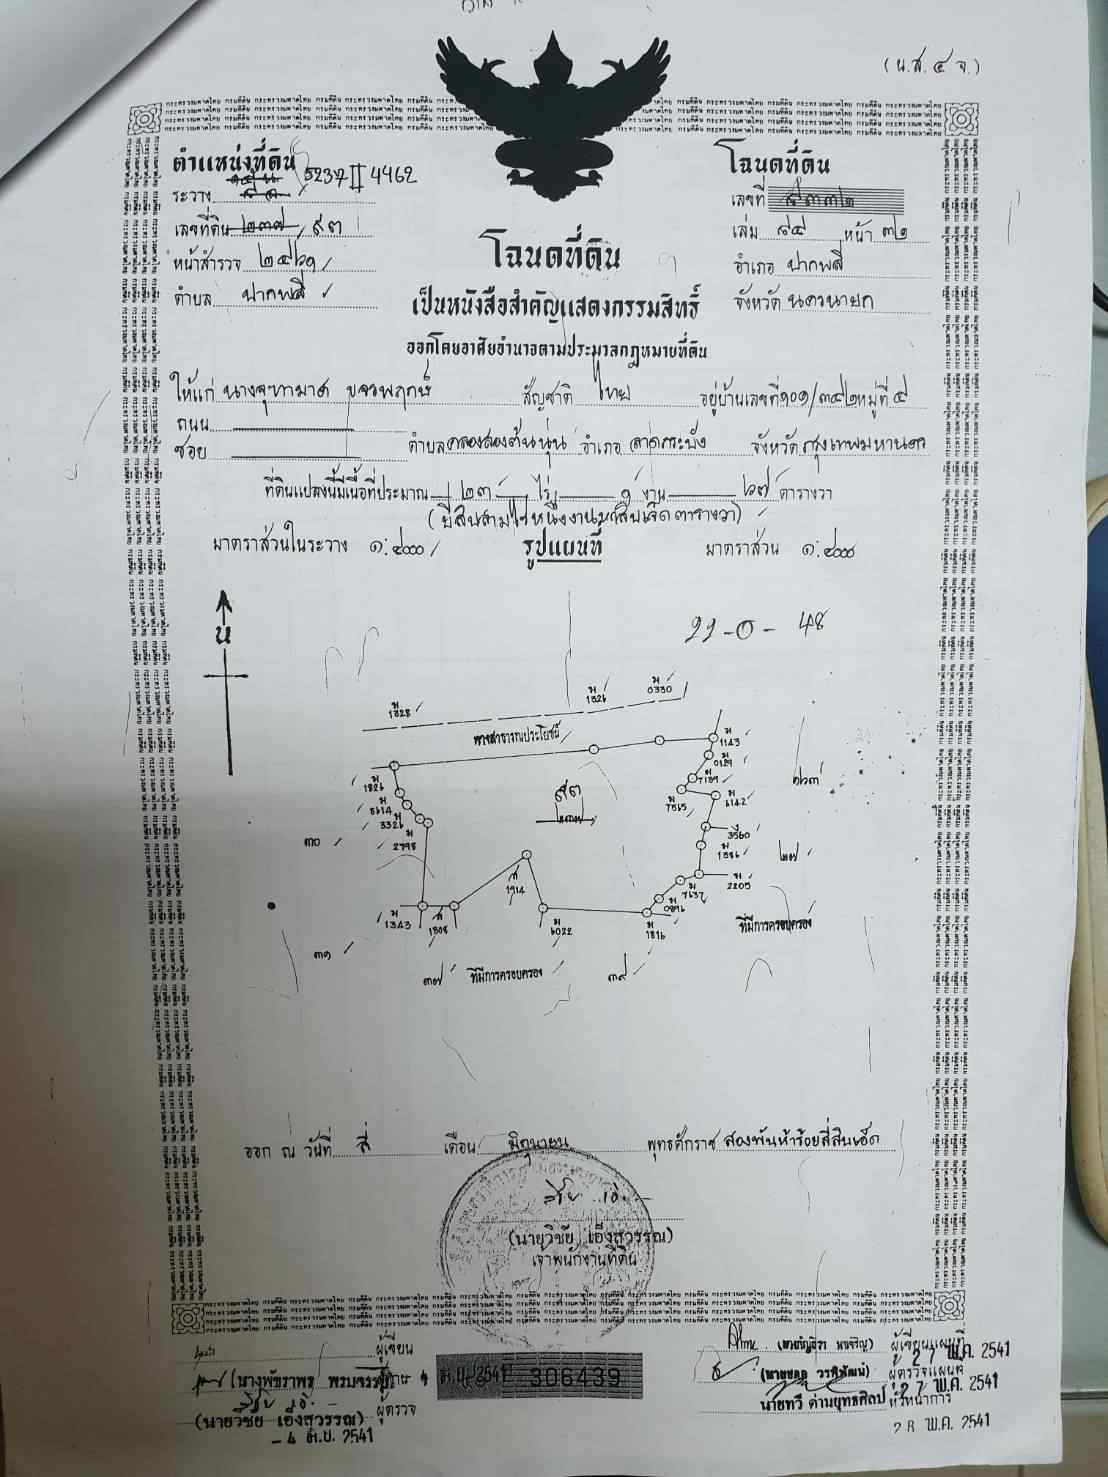 (น.ส. ๔ จ.)
ตำแหน่งที่ดิน
ระวาง 5237 II 4462
เลขที่ดิน ๒๓๗ ๙๓
หน้าสำรวจ
ตำบล ปากพลี
โฉนดที่ดิน
เลขที่
เล่ม ๘๔ หน้า ๓๒
อำเภอ ปากพลี
จังหวัด นครนายก
โฉนดที่ดิน
เป็นหนังสือสำคัญแสดงกรรมสิทธิ์
ออกโดยอาศัยอำนาจตามประมวลกฎหมายที่ดิน
ให้แก่ นางจุฑามาศ ขจรพฤกษ์ สัญชาติ ไทย อยู่บ้านเลขที่ ๑๐๑/๓๔๒ หมู่ที่ ๔
ถนน
ซอย ตำบล คลองสองต้นนุ่น อำเภอ ลาดกระบัง จังหวัด กรุงเทพมหานคร
ที่ดินแปลงนี้มีเนื้อที่ประมาณ ๒๓ ไร่ ๑ งาน ๖๗ ตารางวา
(ยี่สิบสามไร่หนึ่งงานหกสิบเจ็ดตารางวา)
มาตราส่วนในระวาง ๑:๔๐๐๐ รูปแผนที่ มาตราส่วน ๑:๔๐๐๐
น
22-0-48
ม 1328
ม 1326
ม 0330
ทางสาธารณประโยชน์
ม 1143
0129
7139
ม 7565
ม 6142
3560
ม 1386
ม 2205
ม 7637
ม 0896
ม 1816
ม 6022
ส 1914
ส 1808
ม 1343
ม 1826
ม 8614
ม 3326
ม 2798
๙๓
๒๗
๓๐
๓๑
๓๗ ที่มีการครอบครอง ๓๙
ที่มีการครอบครอง
ออก ณ วันที่ สี่ เดือน มิถุนายน พุทธศักราช สองพันห้าร้อยสี่สิบเอ็ด
(นายวิชัย เอ็งสุวรรณ)
เจ้าพนักงานที่ดิน
ผู้เขียน
(นายวิชัย เอ็งสุวรรณ) ผู้ตรวจ
- 4 มิ.ย. 2541
306439
ผู้เขียนแผนที่
27 พ.ค. 2541
ผู้ตรวจแผนที่
27 พ.ค. 2541
นายทวี ด่านยุทธศิลป์ หัวหน้าการ
28 พ.ค. 2541